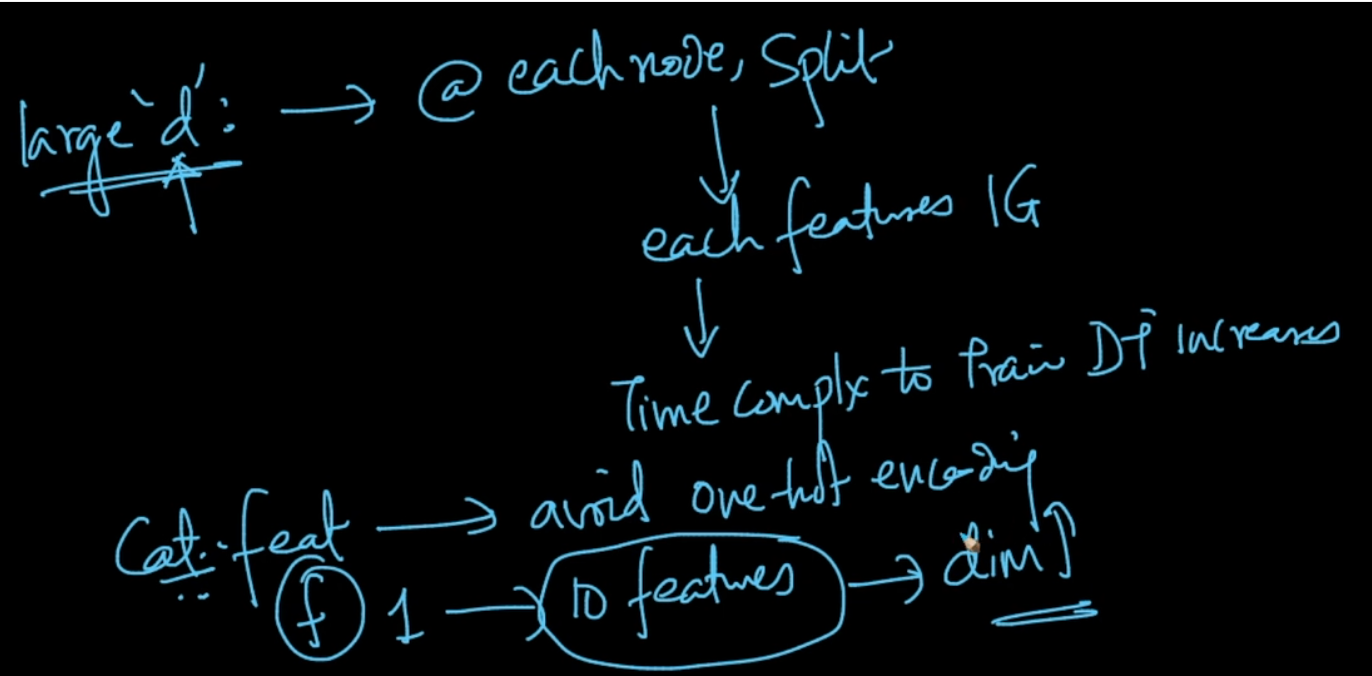 large 'd': → @ each node, split
↓
each features IG
↓
Time complx to train DT increases
Cat. feat → avoid one-hot encoding
f 1 → 10 features → dim ↑